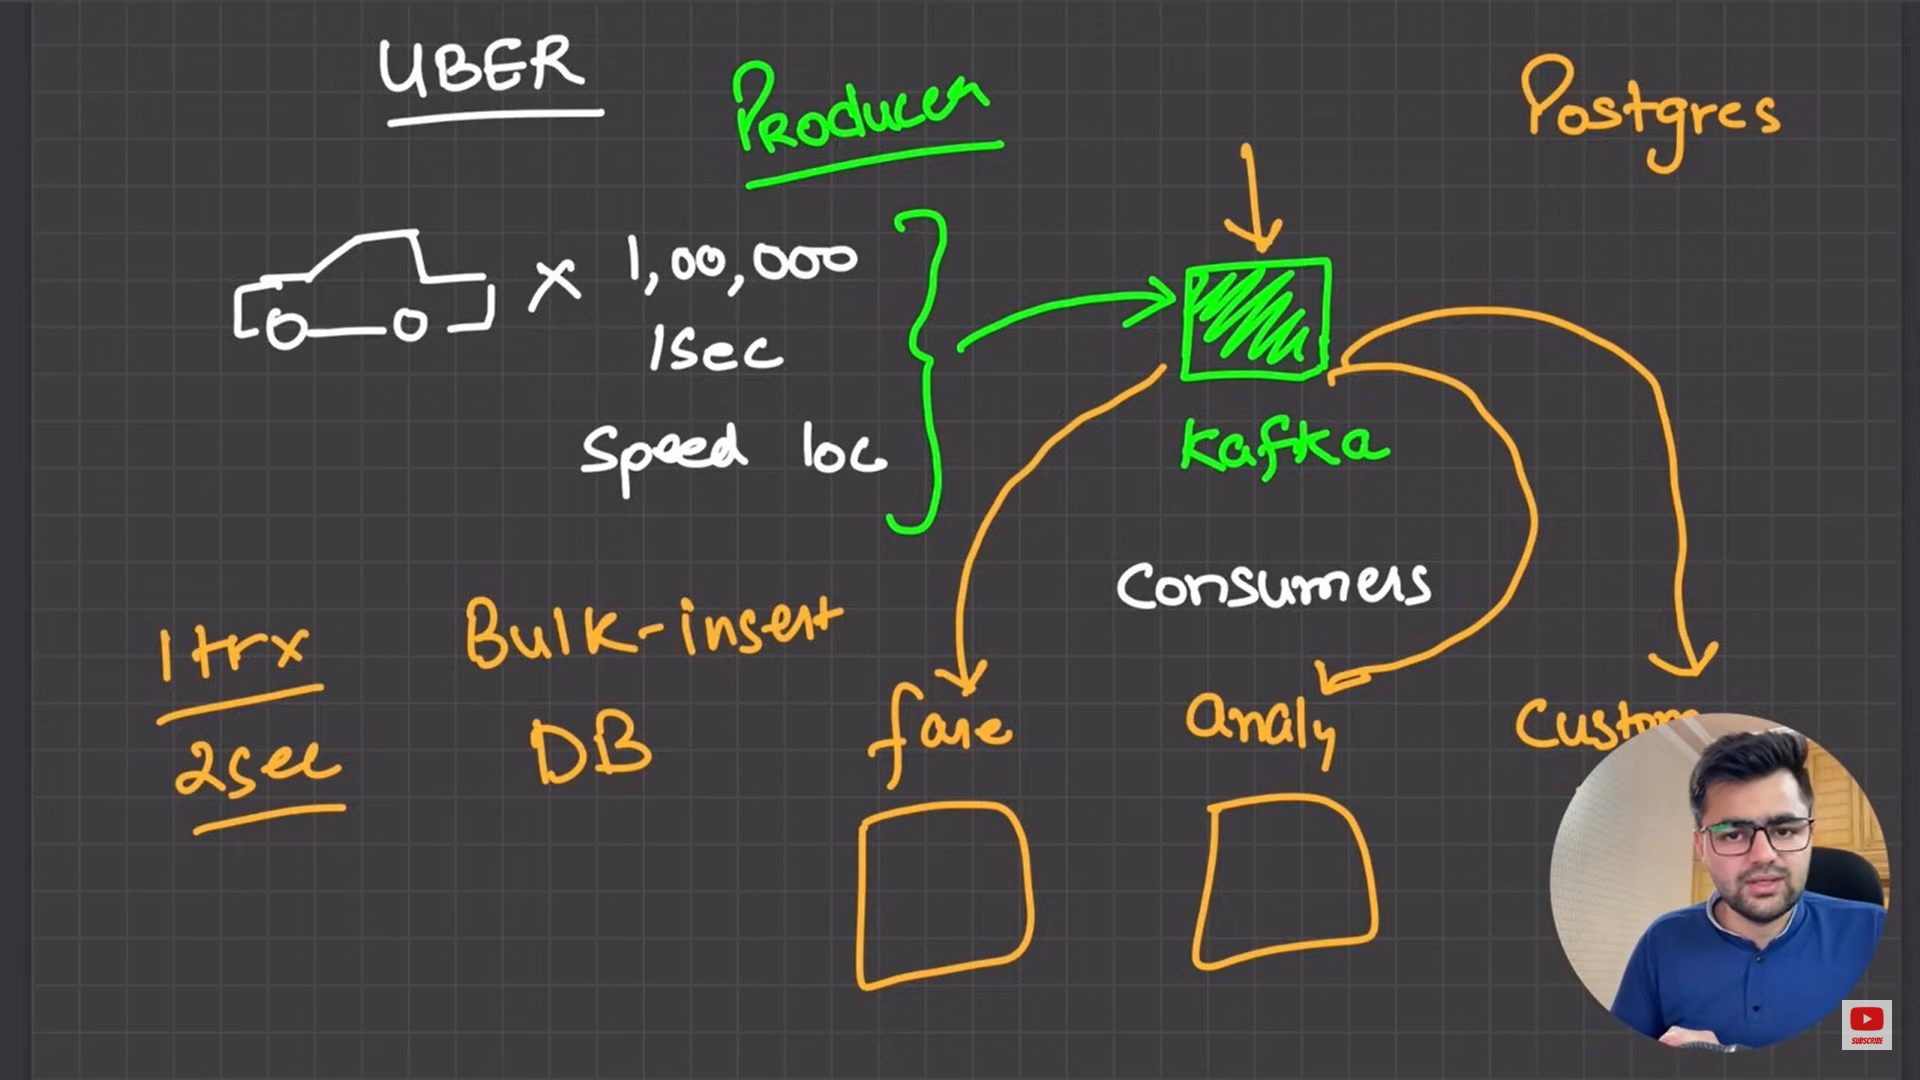 UBER
Producer
Postgres
x 1,00,000
1sec
Speed loc
Kafka
Consumers
1 trx
2sec
Bulk-insert
DB
fare
Analy
Custom
SUBSCRIBE